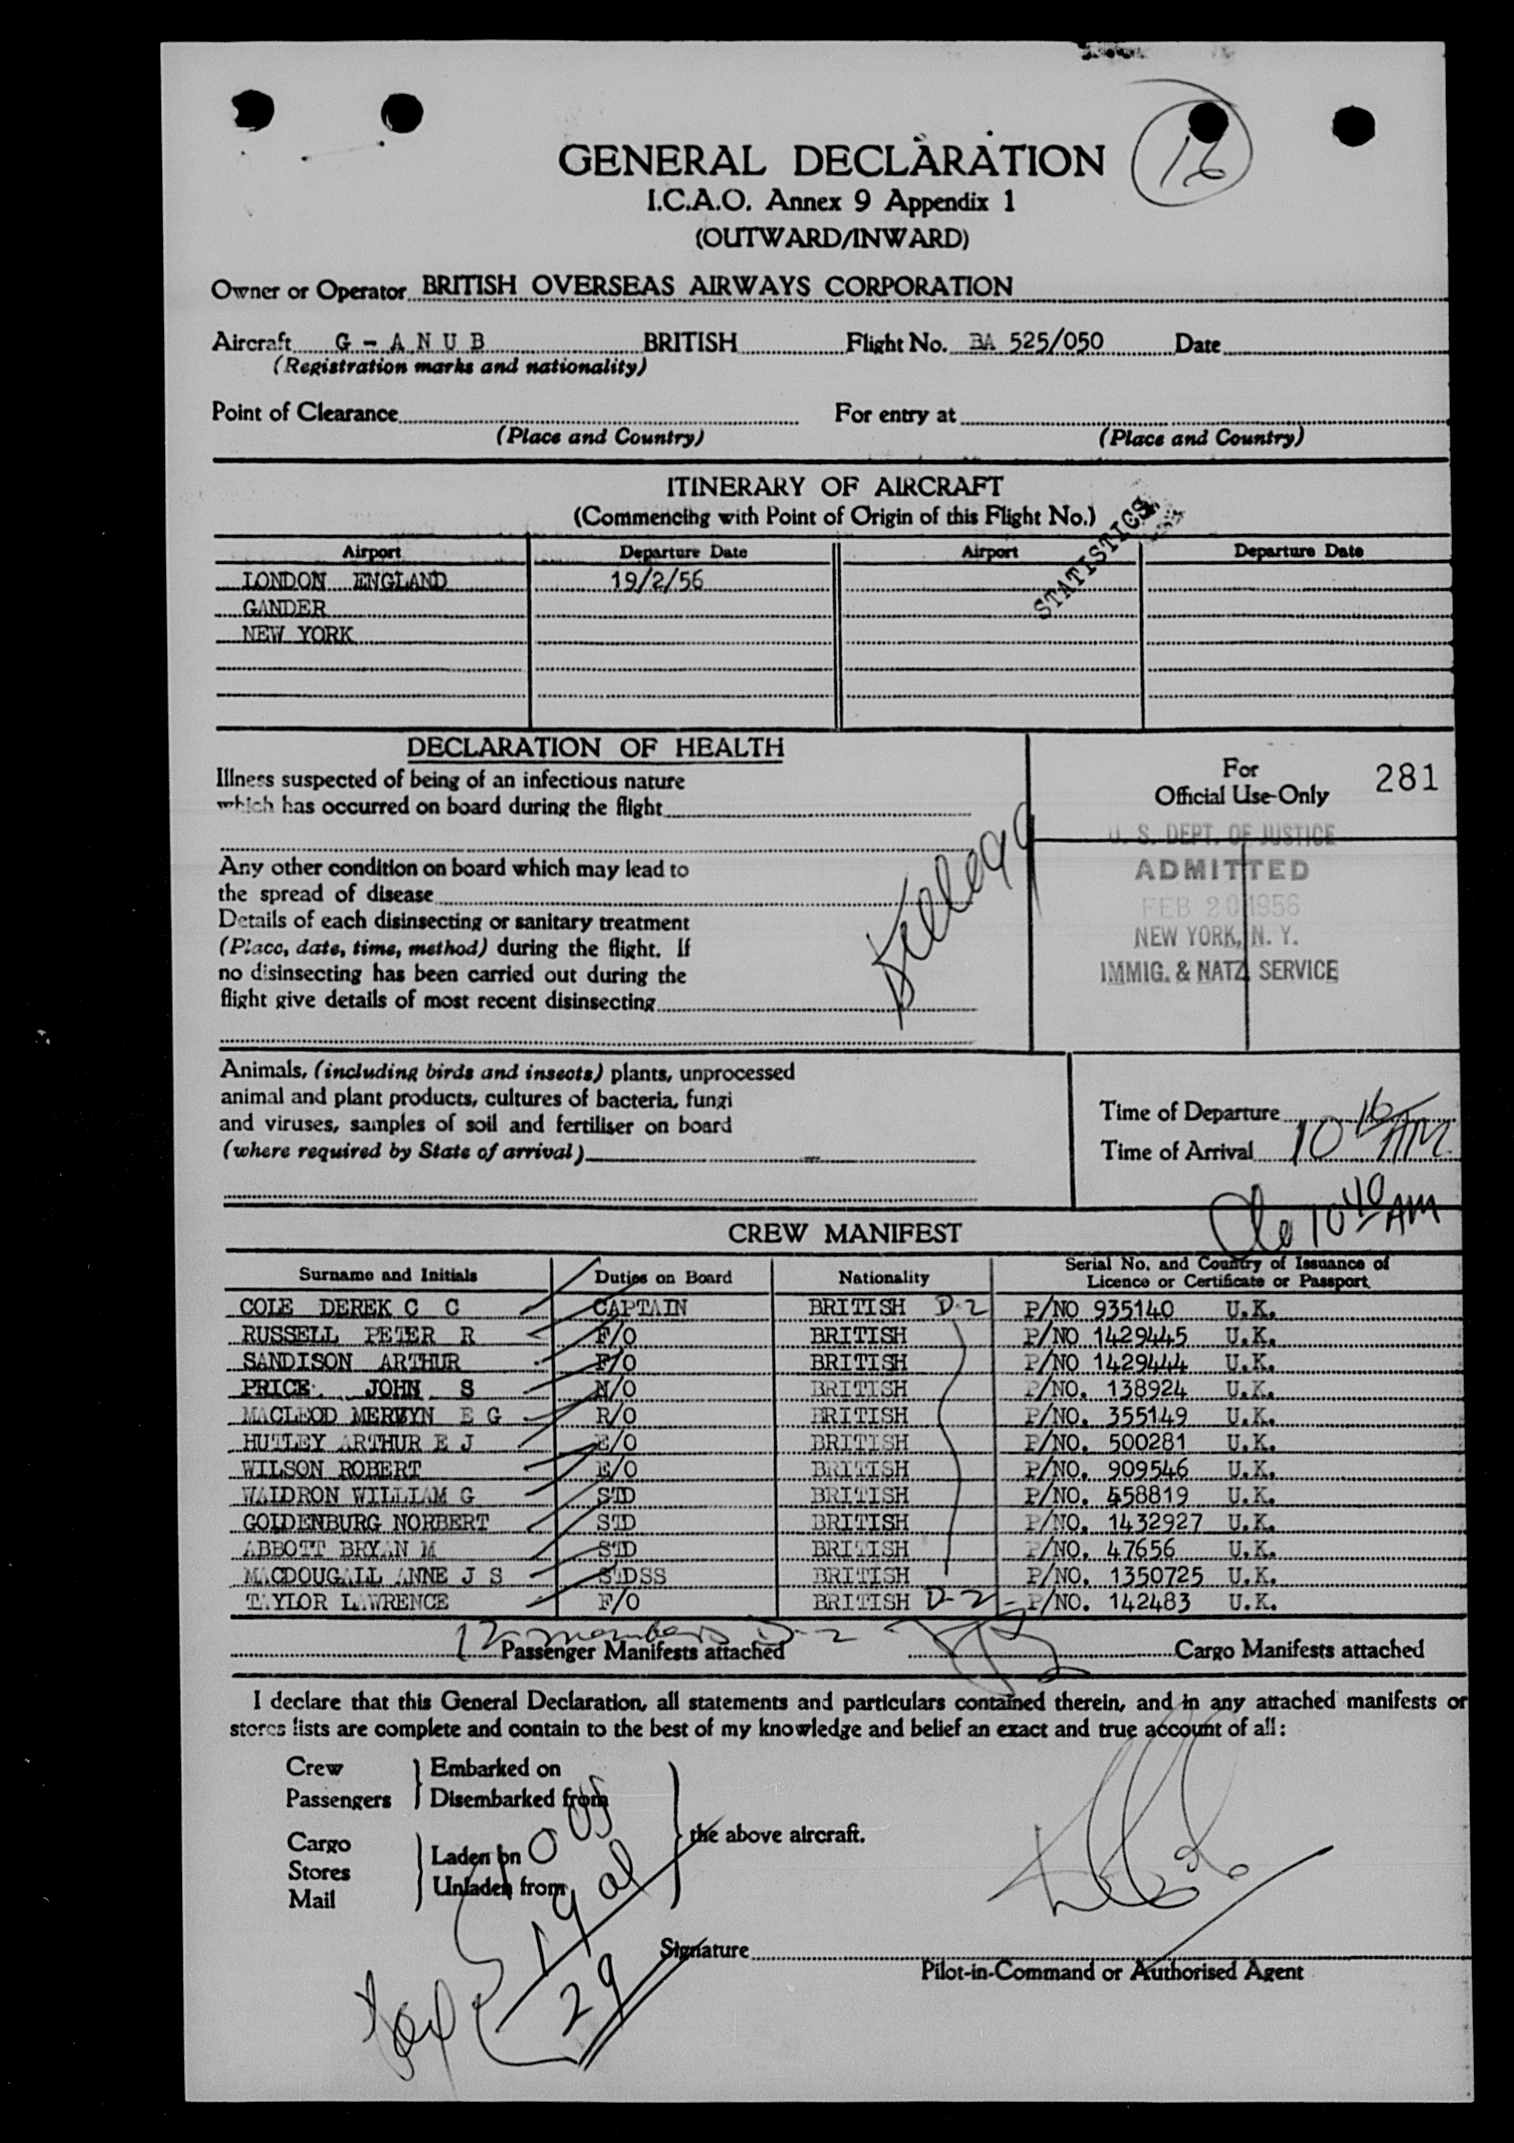 16
GENERAL DECLARATION
I.C.A.O. Annex 9 Appendix 1
(OUTWARD/INWARD)
Owner or Operator BRITISH OVERSEAS AIRWAYS CORPORATION
Aircraft G - A N U B BRITISH Flight No. BA 525/050 Date
(Registration marks and nationality)
Point of Clearance For entry at
(Place and Country) (Place and Country)
ITINERARY OF AIRCRAFT
(Commencing with Point of Origin of this Flight No.)
STATISTICS
Airport Departure Date Airport Departure Date
LONDON ENGLAND 19/2/56
GANDER
NEW YORK
DECLARATION OF HEALTH
Illness suspected of being of an infectious nature
which has occurred on board during the flight
For
Official Use Only 281
Any other condition on board which may lead to
the spread of disease
Details of each disinsecting or sanitary treatment
(Place, date, time, method) during the flight. If
no disinsecting has been carried out during the
flight give details of most recent disinsecting
Kellogg
U. S. DEPT. OF JUSTICE
ADMITTED
FEB 20 1956
NEW YORK, N. Y.
IMMIG. & NATZ. SERVICE
Animals, (including birds and insects) plants, unprocessed
animal and plant products, cultures of bacteria, fungi
and viruses, samples of soil and fertiliser on board
(where required by State of arrival)
Time of Departure
Time of Arrival 10 16 AM
10 40 AM
CREW MANIFEST
Surname and Initials Duties on Board Nationality Serial No. and Country of Issuance of
Licence or Certificate or Passport
COLE DEREK C C CAPTAIN BRITISH D-2 P/NO 935140 U.K.
RUSSELL PETER R F/O BRITISH P/NO 1429445 U.K.
SANDISON ARTHUR F/O BRITISH P/NO 1429444 U.K.
PRICE JOHN S N/O BRITISH P/NO. 138924 U.K.
MACLEOD MERWYN E G R/O BRITISH P/NO. 355149 U.K.
HUTLEY ARTHUR E J E/O BRITISH P/NO. 500281 U.K.
WILSON ROBERT E/O BRITISH P/NO. 909546 U.K.
WALDRON WILLIAM G STD BRITISH P/NO. 458819 U.K.
GOLDENBURG NORBERT STD BRITISH P/NO. 1432927 U.K.
ABBOTT BRYAN M STD BRITISH P/NO. 47656 U.K.
MACDOUGALL ANNE J S STDSS BRITISH P/NO. 1350725 U.K.
TAYLOR LAWRENCE F/O BRITISH D-2 P/NO. 142483 U.K.
12 members D-2
Passenger Manifests attached Cargo Manifests attached
I declare that this General Declaration, all statements and particulars contained therein, and in any attached manifests or
stores lists are complete and contain to the best of my knowledge and belief an exact and true account of all:
Crew Embarked on
Passengers Disembarked from
the above aircraft.
Cargo
Stores Laden on
Mail Unladen from
19 al
29
Signature
Pilot-in-Command or Authorised Agent